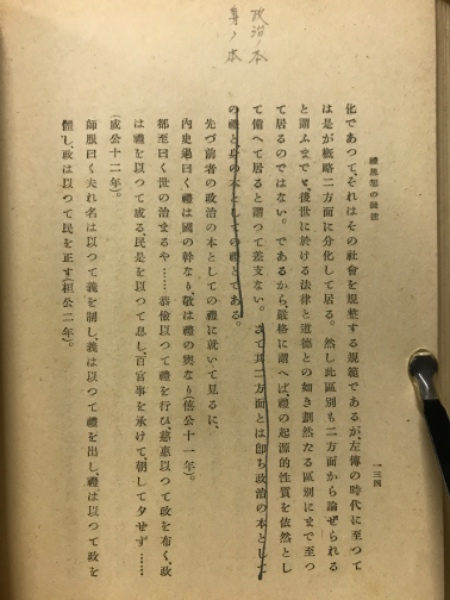 政治ノ本
身ノ本
禮思想の發達
一三四
化であつて、それはその社會を規整する規範であるが、左傳の時代に至つて
は是が概略二方面に分化して居る。然し此區別も二方面から論ぜられる
と謂ふまでで、後世に於ける法律と道德との如き劃然たる區別にまで至つ
て居るのではない。であるから、嚴格に謂へば、禮の起源的性質を依然とし
て備へて居ると謂つて差支ない。さて其二方面とは卽ち政治の本として
の禮と、身の本としての禮とである。
先づ前者の政治の本としての禮に就いて見るに、
內史過曰く禮は國の幹なり、敬は禮の輿なり(僖公十一年)。
郤至曰く世の治まるや……恭儉以つて禮を行ひ、慈惠以つて政を布く、政
は禮を以つて成る、民是を以つて息し、百官事を承けて、朝して夕せず……
(成公十二年)。
師服曰く夫れ名は以つて義を制し、義は以つて禮を出し、禮は以つて政を
體し、政は以つて民を正す(桓公二年)。